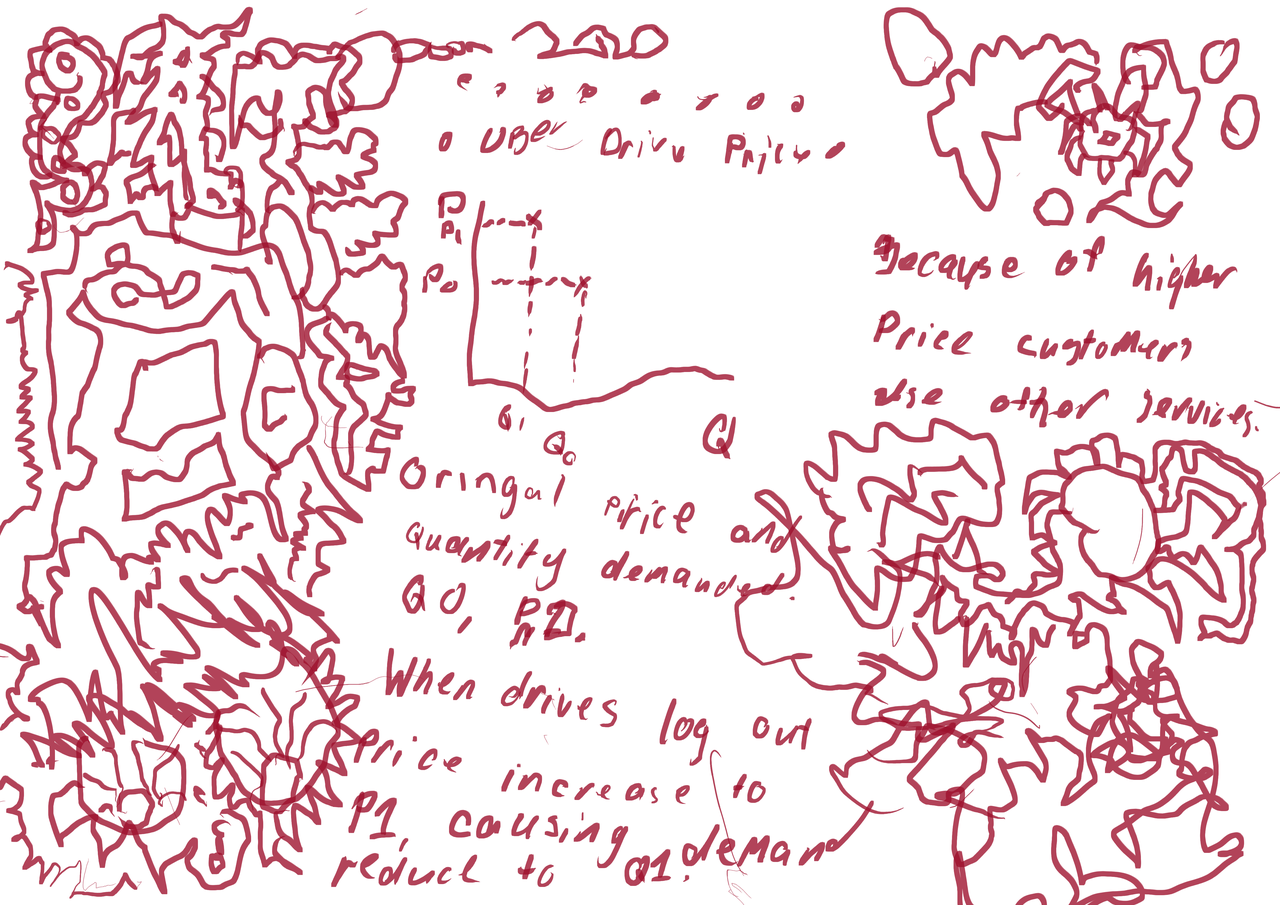 UBer Driv Prices
P
P1
P0
Q1
Q0
Q
Oringal price and
quantity demanded.
Q0,
When drives log out
Price increase to
P1, causing demand
reduce to Q1.
Because of higher
Price customers
use other services.